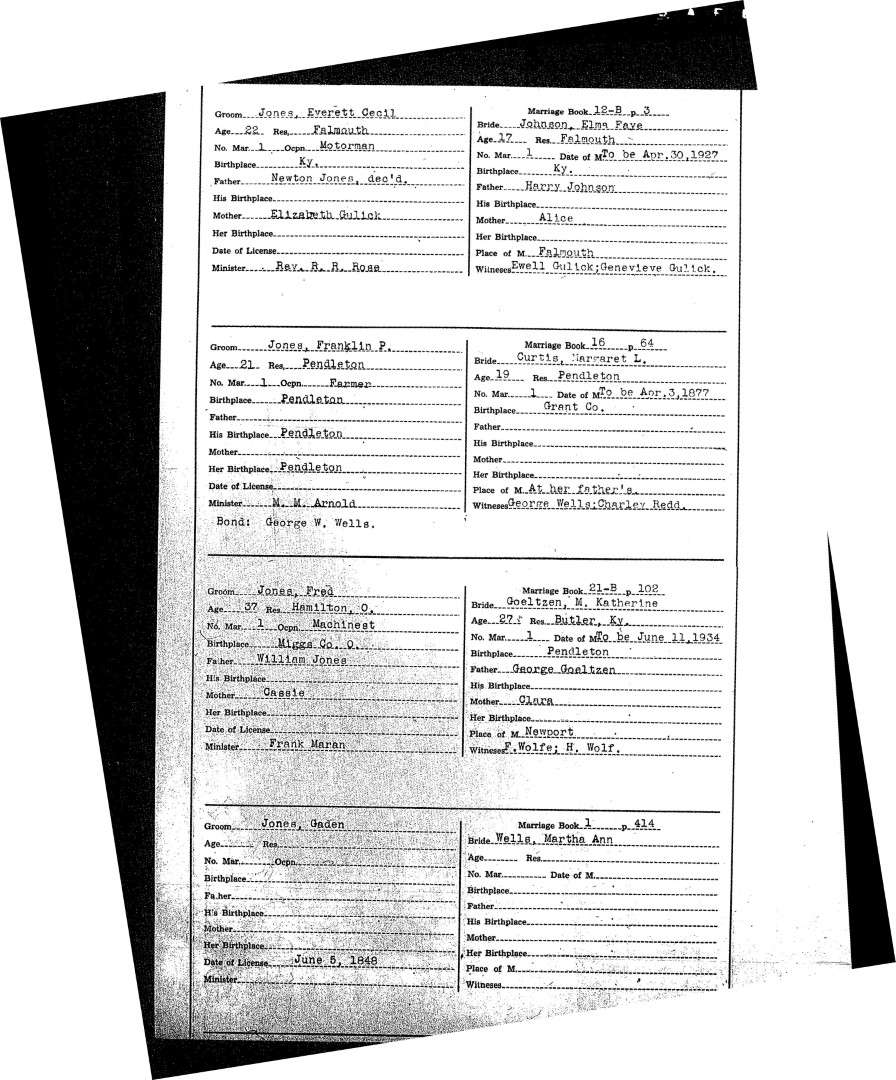 Groom Jones, Everett Cecil
Age 22 Res. Falmouth
No. Mar. 1 Ocpn. Motorman
Birthplace Ky.
Father Newton Jones, dec'd.
His Birthplace
Mother Elizabeth Gulick
Her Birthplace
Date of License
Minister Rev. R. R. Rose
Marriage Book 12-B p. 3
Bride Johnson, Elma Faye
Age 17 Res. Falmouth
No. Mar. 1 Date of M. To be Apr.30,1927
Birthplace Ky.
Father Harry Johnson
His Birthplace
Mother Alice
Her Birthplace
Place of M. Falmouth
Witneses Ewell Gulick;Genevieve Gulick.
Groom Jones, Franklin P.
Age 21 Res. Pendleton
No. Mar. 1 Ocpn. Farmer
Birthplace Pendleton
Father
His Birthplace Pendleton
Mother
Her Birthplace Pendleton
Date of License
Minister M. M. Arnold
Bond: George W. Wells.
Marriage Book 16 p. 64
Bride Curtis, Margaret L.
Age 19 Res. Pendleton
No. Mar. 1 Date of M. To be Apr.3,1877
Birthplace Grant Co.
Father
His Birthplace
Mother
Her Birthplace
Place of M. At her father's.
Witneses George Wells;Charley Redd.
Groom Jones, Fred
Age 37 Res. Hamilton, O.
No. Mar. 1 Ocpn. Machinest
Birthplace Miggs Co. O.
Father William Jones
His Birthplace
Mother Cassie
Her Birthplace
Date of License
Minister Frank Maran
Marriage Book 21-B p. 102
Bride Goeltzen, M. Katherine
Age 27 Res. Butler, Ky.
No. Mar. 1 Date of M. To be June 11,1934
Birthplace Pendleton
Father George Goeltzen
His Birthplace
Mother Clara
Her Birthplace
Place of M. Newport
Witneses F.Wolfe; H. Wolf.
Groom Jones, Gaden
Age Res.
No. Mar. Ocpn.
Birthplace
Father
His Birthplace
Mother
Her Birthplace
Date of License June 5, 1848
Minister
Marriage Book 1 p. 414
Bride Wells, Martha Ann
Age Res.
No. Mar. Date of M.
Birthplace
Father
His Birthplace
Mother
Her Birthplace
Place of M.
Witneses